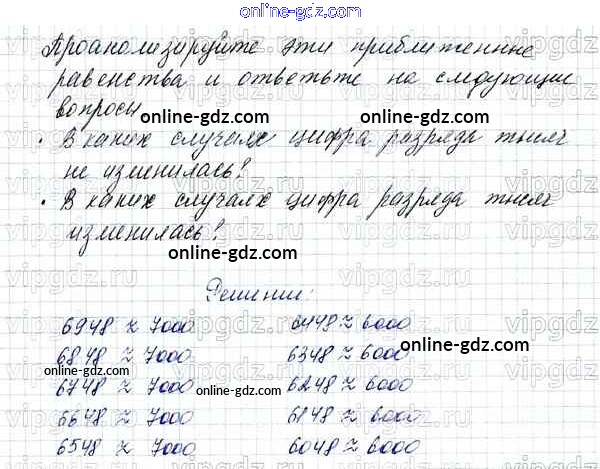 Проанолизируйте эти приближенные
равенства и ответьте на следующие
вопросы
· В каких случаях цифра разряда тысяч
не изменилась?
· В каких случаях цифра разряда тысяч
изменилась?
Решение:
6948 ≈ 7000 6448 ≈ 6000
6848 ≈ 7000 6348 ≈ 6000
6748 ≈ 7000 6248 ≈ 6000
6648 ≈ 7000 6148 ≈ 6000
6548 ≈ 7000 6048 ≈ 6000
online-gdz.com
online-gdz.com
online-gdz.com
online-gdz.com
online-gdz.com
online-gdz.com
online-gdz.com
online-gdz.com
online-gdz.com
vipgdz.ru